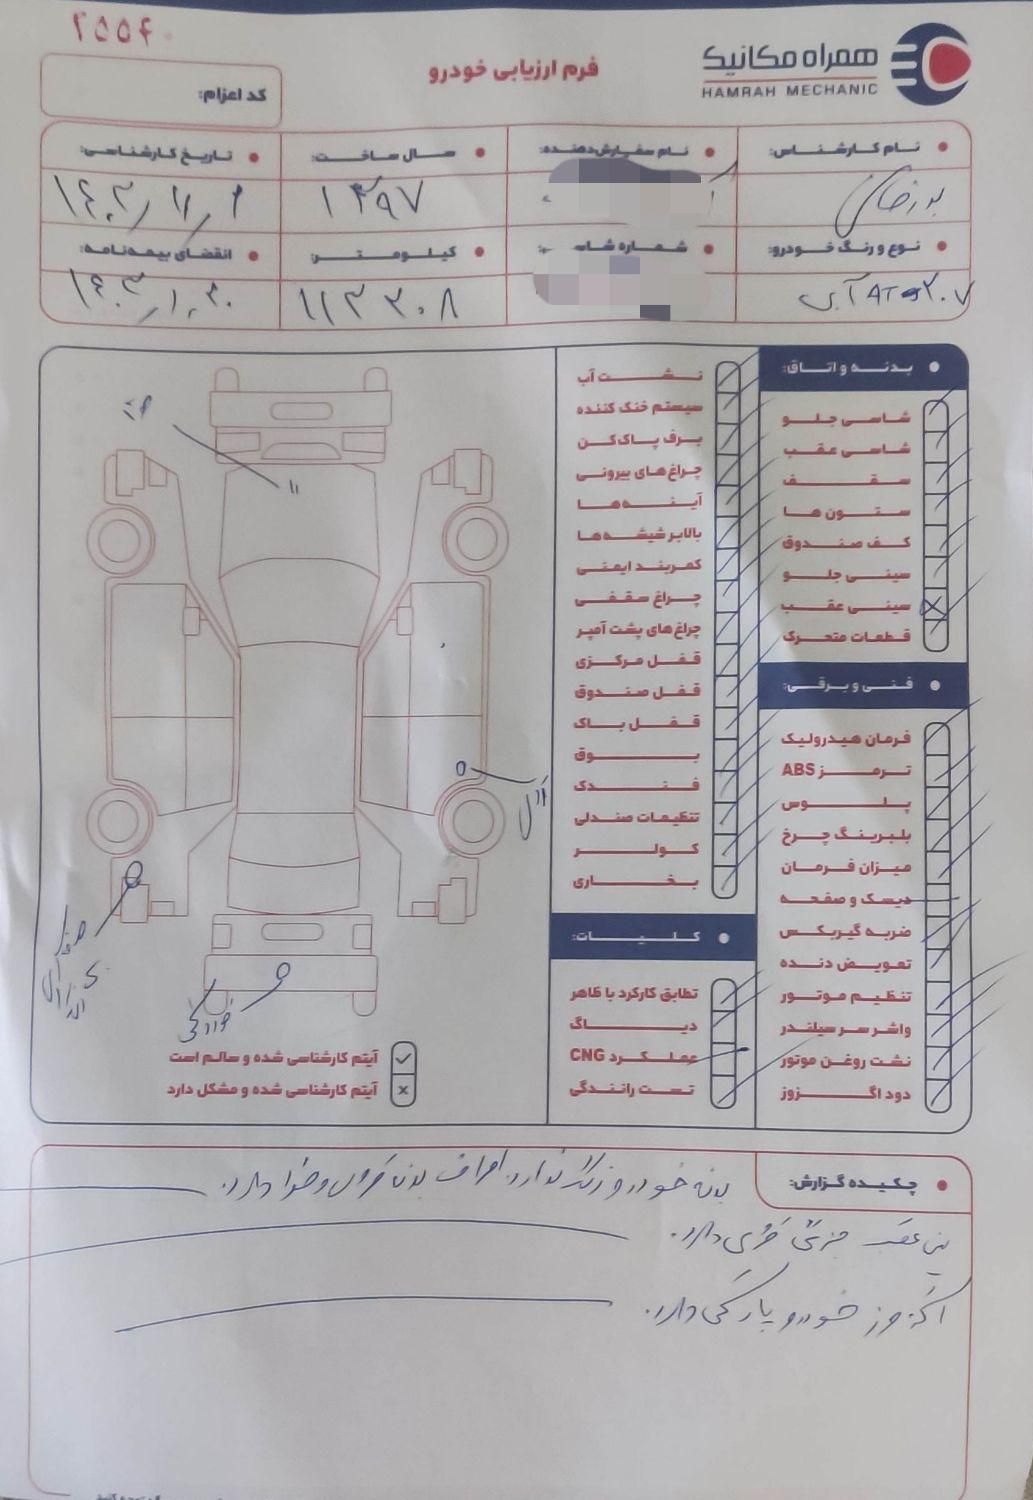 ۲۵۵۴۰
همراه مکانیک
HAMRAH MECHANIC
فرم ارزیابی خودرو
کد اعزام:
نام کارشناس:
نام سفارش‌دهنده:
سال ساخت:
تاریخ کارشناسی:
۱۳۹۷
نوع و رنگ خودرو:
شماره شاسی:
کیلومتر:
انقضای بیمه‌نامه:
آبی
۱۱۳۳۰۸
بدنه و اتاق:
شاسی جلو
شاسی عقب
سقف
ستون ها
کف صندوق
سینی جلو
سینی عقب
قطعات متحرک
فنی و برقی:
فرمان هیدرولیک
ترمز ABS
پلوس
بلبرینگ چرخ
میزان فرمان
دیسک و صفحه
ضربه گیربکس
تعویض دنده
تنظیم موتور
واشر سر سیلندر
نشت روغن موتور
دود اگزوز
نشت آب
سیستم خنک کننده
برف پاک‌کن
چراغ‌های بیرونی
آینه‌ها
بالابر شیشه‌ها
کمربند ایمنی
چراغ سقفی
چراغ‌های پشت آمپر
قفل مرکزی
قفل صندوق
قفل باک
بوق
فندک
تنظیمات صندلی
کولر
بخاری
کلیات:
تطابق کارکرد با ظاهر
دیاگ
عملکرد CNG
تست رانندگی
آیتم کارشناسی شده و سالم است
آیتم کارشناسی شده و مشکل دارد
چکیده گزارش:
بدنه خودرو رنگ ندارد. اطراف بدنه قری و خط دارد.
سینی عقب جزئی قری دارد.
اگزوز خودرو پارگی دارد.